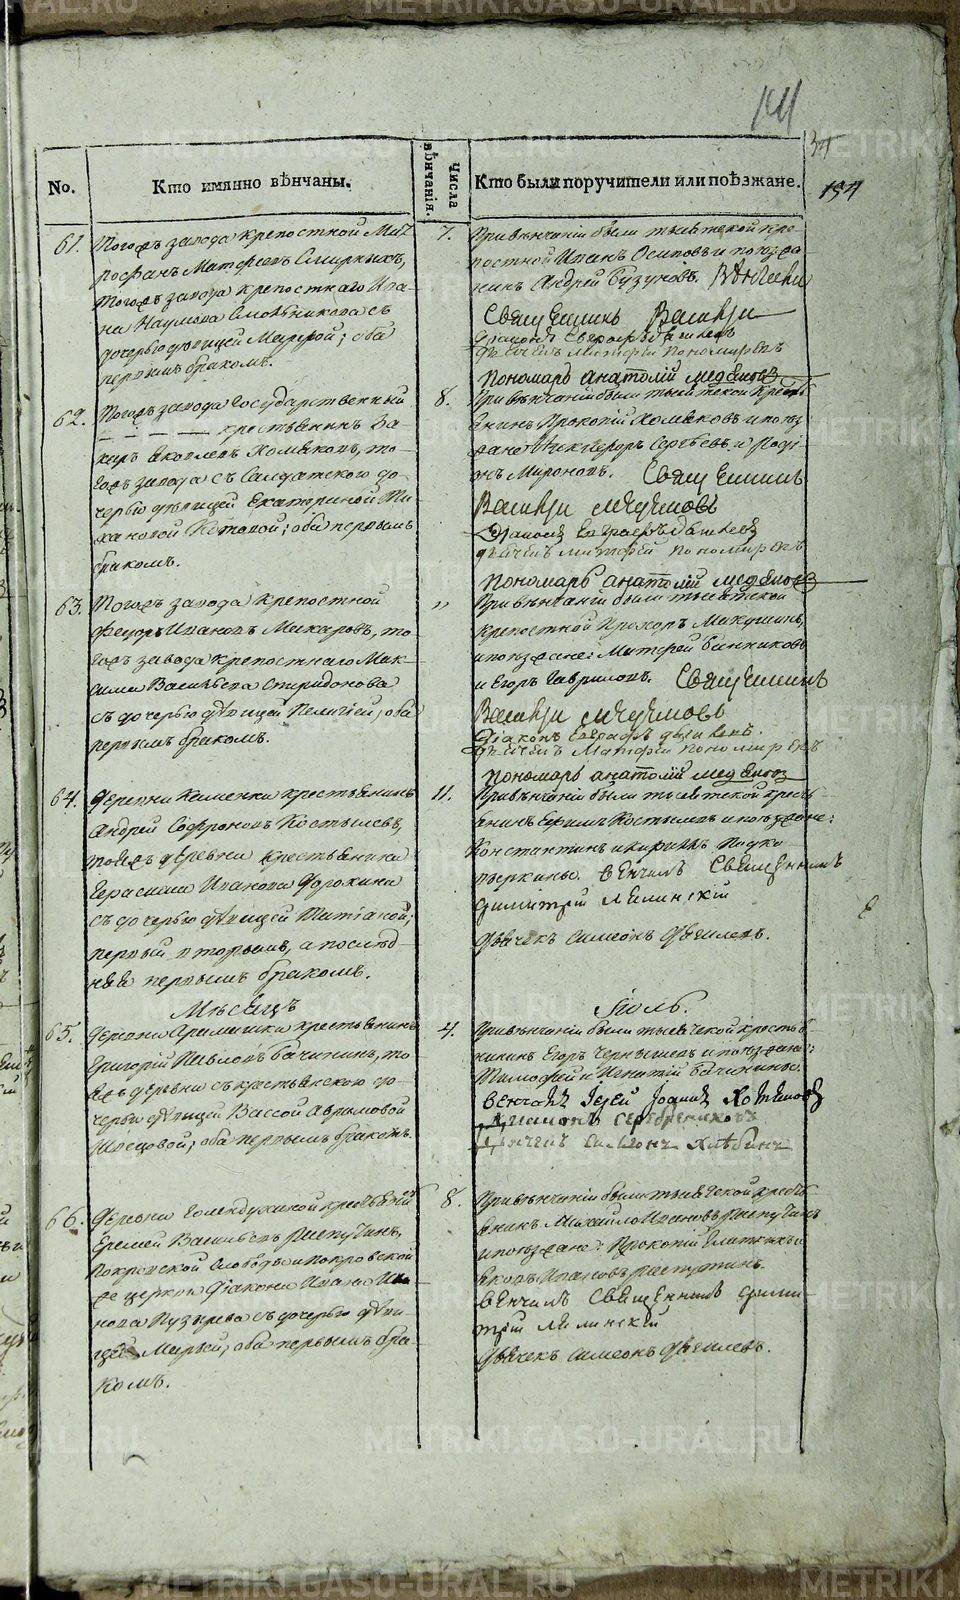 141
34
No.
Кто имянно вѣнчаны.
Числа вѣнчанія.
Кто были поручители или поѣзжане.
154
61.
Тогожъ завода крепостной Мит
рофанъ Матфеевъ Смирныхъ,
тогожъ завода крепостнаго Ива
на Наумова Смольникова съ
дочерью дѣвицей Марфой; оба
первымъ бракомъ.
7.
При вѣнчаніи были тысятской кре
постной Иванъ Осиповъ и поѣзжа
нинъ Андрей Бузуновъ. Вѣнчали
Священникъ Василій
Діаконъ Евграфъ
Дьячекъ Матфей Пономаревъ
Пономарь Анатолій
62.
Тогожъ завода Государственный
крестьянинъ За
харъ Яковлевъ Хомяковъ, то
гожъ завода съ Салдатскою до
черью дѣвицей Екатериной
Котовой; оба первымъ
бракомъ.
8.
При вѣнчаніи были тысятской Крест
янинъ Прокопій Хомяковъ и поѣз
жане Никифоръ Сергѣевъ и Роді
онъ Мироновъ. Священникъ
Василій
Діаконъ Евграфъ
Дьячекъ Матфей Пономаревъ
Пономарь Анатолій
63.
Тогожъ завода Крепостной
Федоръ Ивановъ Макаровъ, то
гожъ завода крепостнаго Мак
сима Васильева Спиридонова
съ дочерью дѣвицей Пелагіей; оба
первымъ бракомъ.
"
При вѣнчаніи были тысятской
крепостной Прохоръ Макушинъ,
и поѣзжане: Матфей Банниковъ
и Егоръ Гавриловъ. Священникъ
Василій
Діаконъ Евграфъ
Дьячекъ Матфей Пономаревъ
Пономарь Анатолій
64.
Деревни Каменки крестьянинъ
Андрей Софроновъ Костылевъ,
тойжъ деревни крестьянина
Герасима Иванова Сорокина
съ дочерью дѣвицей Татіаной;
первый вторымъ, а послѣд
няя первымъ бракомъ.
11.
При вѣнчаніи были тысятской крест
янинъ Ефимъ Костылевъ и поѣзжане:
Константинъ и Кирилъ
Вѣнчалъ Священникъ
Димитрій Ляпинскій
Дьячекъ Симеонъ
Мѣсяцъ
Іюль.
65.
Деревни Арамашки крестьянинъ
Григорій Павловъ Бачининъ, то
яжъ деревни съ крестьянскою до
черью дѣвицей Вассой Аврамовой
Швецовой; оба первымъ бракомъ.
4.
При вѣнчаніи были тысяцкой крестья
нинъ Егоръ Чернышевъ и поѣзжане:
Тимофей и Игнатій Бачинины.
Вѣнчалъ Іерей Іоаннъ
Діаконъ Серебренниковъ
Дьячекъ Симеонъ Хлѣбинъ
66.
Деревни Голендухиной крестьянинъ
Еремей Васильевъ Распутинъ,
Покровской Слободы и Покровской
же церкви Діакона Ивана Ива
нова Пузырева съ дочерью дѣви
цей Марьей; оба первымъ бра
комъ.
8.
При вѣнчаніи были тысяцкой крест
янинъ Михайло Ивановъ Распутинъ
и поѣзжане: Прокопій
Яковъ Ивановъ Распутинъ.
Вѣнчалъ Священникъ Дими
трій Ляпинскій
Дьячекъ Симеонъ
METRIKI.GASO-URAL.RU